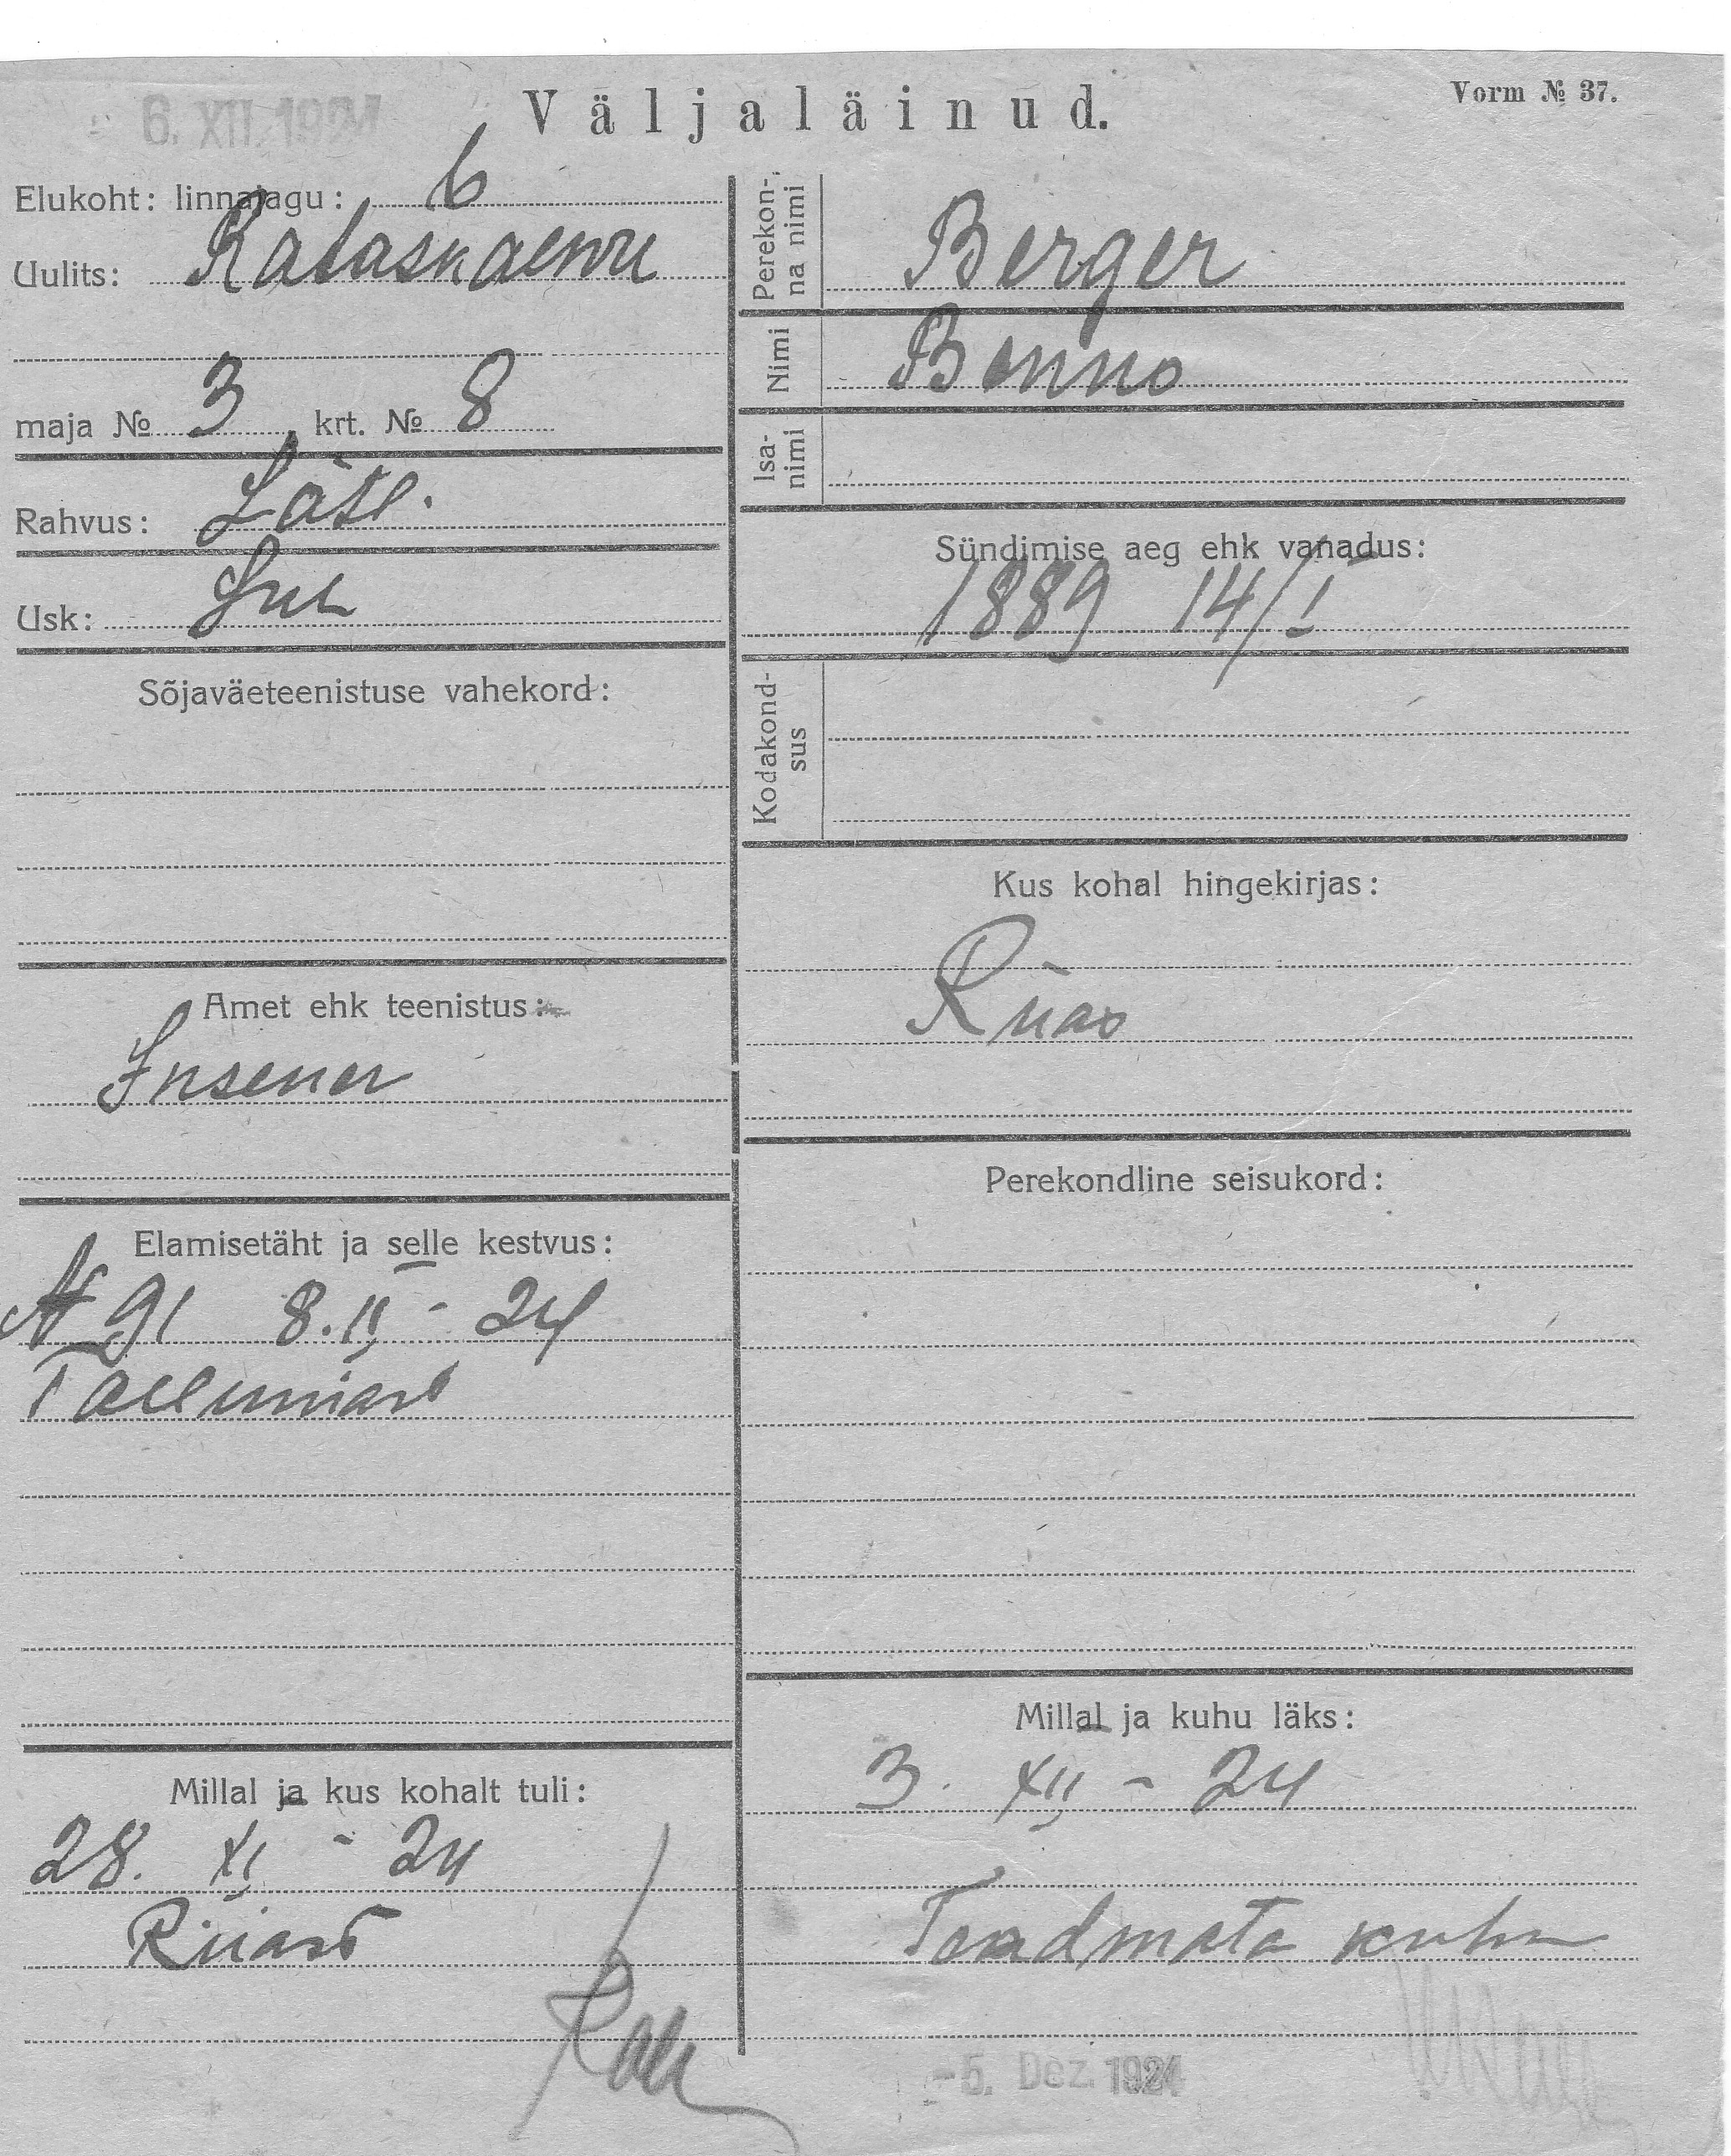 6. XII. 1924
Väljaläinud.
Vorm № 37.
Elukoht: linnajagu: 6
Uulits: Rataskaewu
maja № 3, krt. № 8
Rahvus: Lätl.
Usk: Lut
Sõjaväeteenistuse vahekord:
Amet ehk teenistus:
Insener
Elamisetäht ja selle kestvus:
№ 91 8. II - 24
Tallinnast
Millal ja kus kohalt tuli:
28. XI - 24
Riiast
Perekon-
na nimi
Berger
Nimi
Benno
Isa-
nimi
Sündimise aeg ehk vanadus:
1889 14/I
Kodakond-
sus
Kus kohal hingekirjas:
Riias
Perekondline seisukord:
Millal ja kuhu läks:
3. XII - 24
Teadmata kuhu
- 5. Dez. 1924